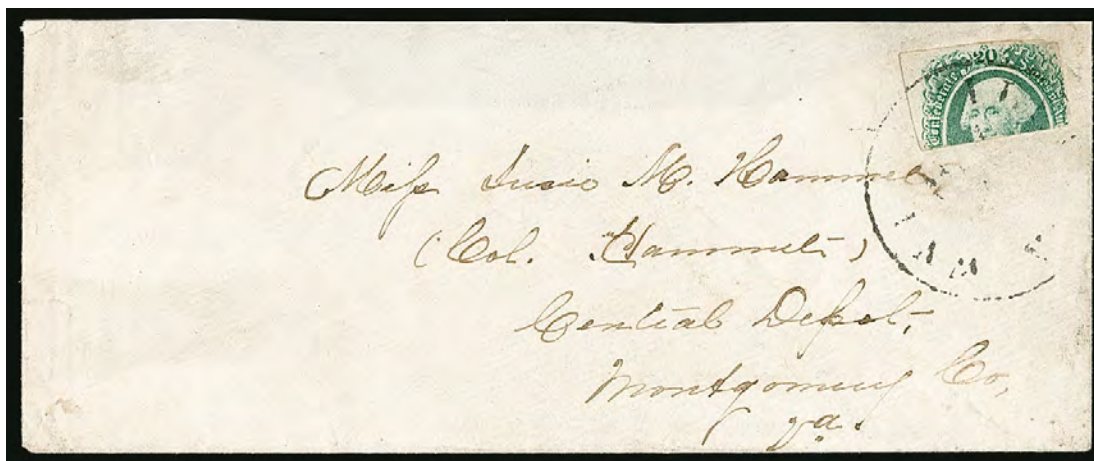 20
Miss Susie M. Hammet
(Col. Hammet)
Central Depot,
Montgomery Co,
Va.